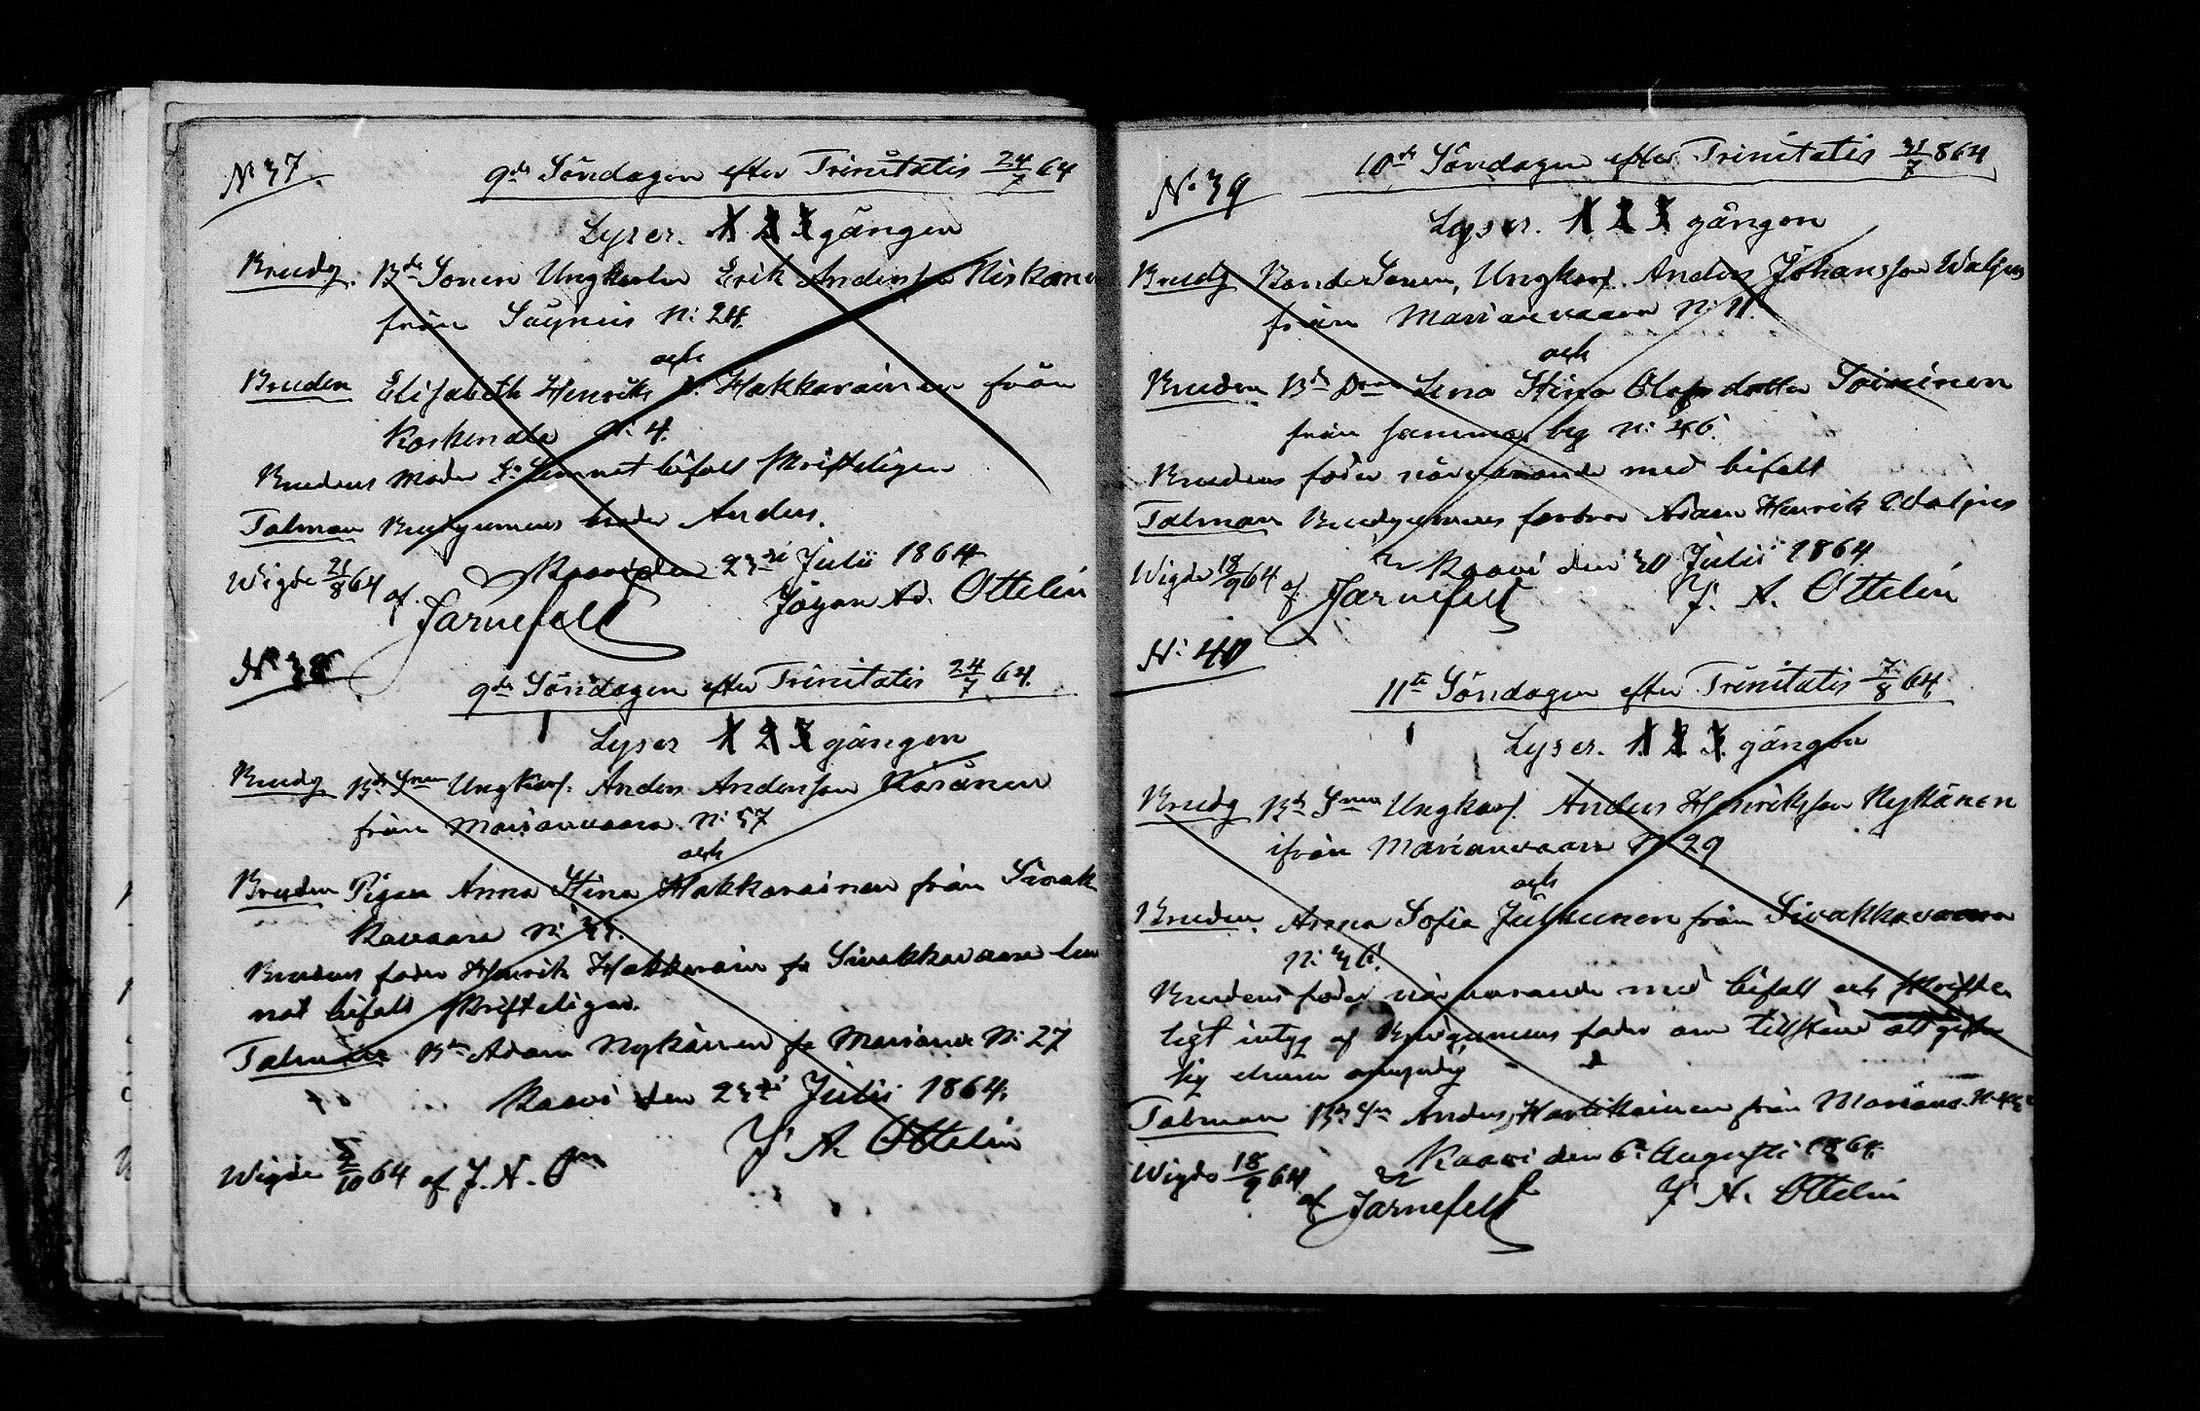 N: 37.
9de Söndagen efter Trinitatis 24/7 64
Lyser. 1 2 3 gången
Brudg. Bde Sonen Ungkarlen Erik Andersson Niskanen
från Säyneis N: 24.
och
Bruden Elisabeth Henriks d. Hakkarainen från
Koskenala N: 4.
Brudens moder lemnat bifall skrifteligen
Talman Brudgumens broder Anders.
Kaavi den 23di Julii 1864
Wigde 21/8 64 af Järnefelt
Jöran Ad. Ottelin
N: 38
9de Söndagen efter Trinitatis 24/7 64.
Lyser 1 2 3 gången
Brudg Bde Snen Ungkarl. Anders Andersson Räsänen
från Marianvaara N: 57
och
Bruden Pigan Anna Stina Hakkarainen från Sivak
kavaara N:
Brudens fader Henrik Hakkarain fr Sivakkavaara lem
nat bifall skrifteligen.
Talman Bdn Adam Nykänen fr Marianv N: 27
Kaavi den 23di Julii 1864.
J. A. Ottelin
Wigde 2/10 64 af J. A. Om
N: 39
10de Söndagen efter Trinitatis 31/7 864
Lyser. 1 2 3 gången
Brudg Bonde Sonen, Ungkarl. Anders Johansson Waljus
från Marianvaara N: 11.
och
Bruden Bde Dren Lena Stina Olofsdotter Toivinen
från samma by N: 46.
Brudens fader närvarande med bifall
Talman Brudgumens farbror Adam Henrik Waljus
Kaavi den 30 Julii 1864
Wigde 18/9 64 af Järnefelt
J. A. Ottelin
N: 40
11te Söndagen efter Trinitatis 7/8 64
Lyser. 1 2 3 gången
Brudg Bde Snen Ungkarl. Anders Henriksson Nykänen
ifrån Marianvaara N: 29
och
Bruden. Anna Sofia Julkunen från Sivakkavaara
N: 36.
Brudens fader närvarande med bifall och skrifte
ligt intyg af Brudgumens fader om tillstånd att gifta
sig
Talman Bde Sn Anders Hartikainen från Marianv.
Kaavi den 6te Augusti 1864.
Wigde 18/9 64 af Järnefelt
J. A. Ottelin